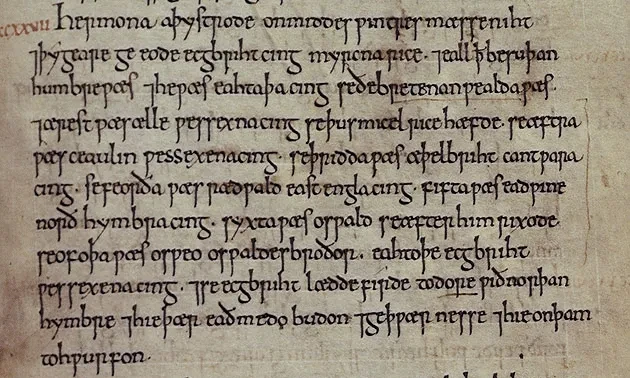 cccxxvii Her mona aþystrode on middes ƿintres mæsseniht
⁊þy geare ge eode ecgbriht cing myrcna rice · ⁊eall þ̄ be suþan
humbre ƿæs ⁊he ƿæs eahtaþa cing se ðe bretenanƿealda ƿæs.
⁊ærest ƿæs ælle ƿessexena cing se þus micel rice hæfde. se æftra
ƿæs ceaulin ƿessexena cing · se þridda ƿæs æþelbriht cantƿara
cing · se feorða ƿæs rædƿald east engla cing · fifta ƿæs eadƿine
norð hymbra cing · syxta ƿæs osƿald se æfter him rixode.
seofoþa ƿæs osƿeo osƿaldes broðor. eahtoþe ecgbriht
ƿessexena cing · ⁊se ecgbriht lædde firde to dore ƿið norþan
hymbre ⁊hie þær eadmedo budon ⁊geþƿærnesse ⁊hie on þam
tohƿurfon ·